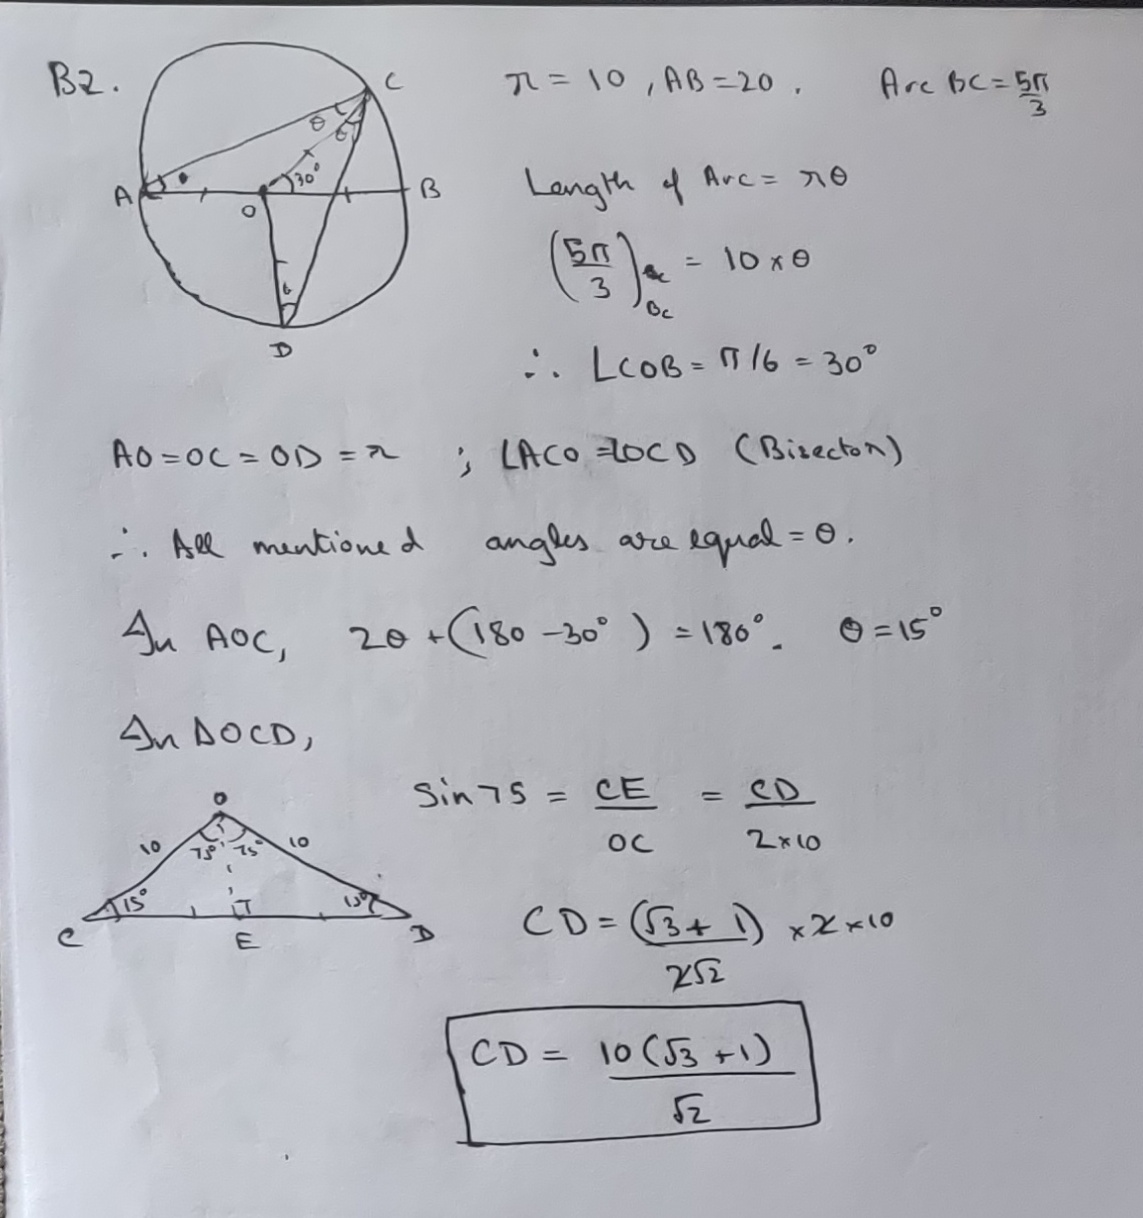 B2.
r = 10 , AB = 20 . Arc BC = 5π/3
C
θ
θ
30°
A
B
O
θ
D
Length of Arc = rθ
(5π/3)BC = 10 × θ
∴ ∠COB = π/6 = 30°
AO = OC = OD = r ; ∠ACO = ∠OCD (Bisector)
∴ All mentioned angles are equal = θ.
In AOC, 2θ + (180 - 30°) = 180°. θ = 15°
In ΔOCD,
O
10 75° 75° 10
15° 15°
C E D
Sin 75 = CE/OC = CD/2×10
CD = (√3 + 1)/2√2 × 2 × 10
CD = 10(√3 + 1)/√2